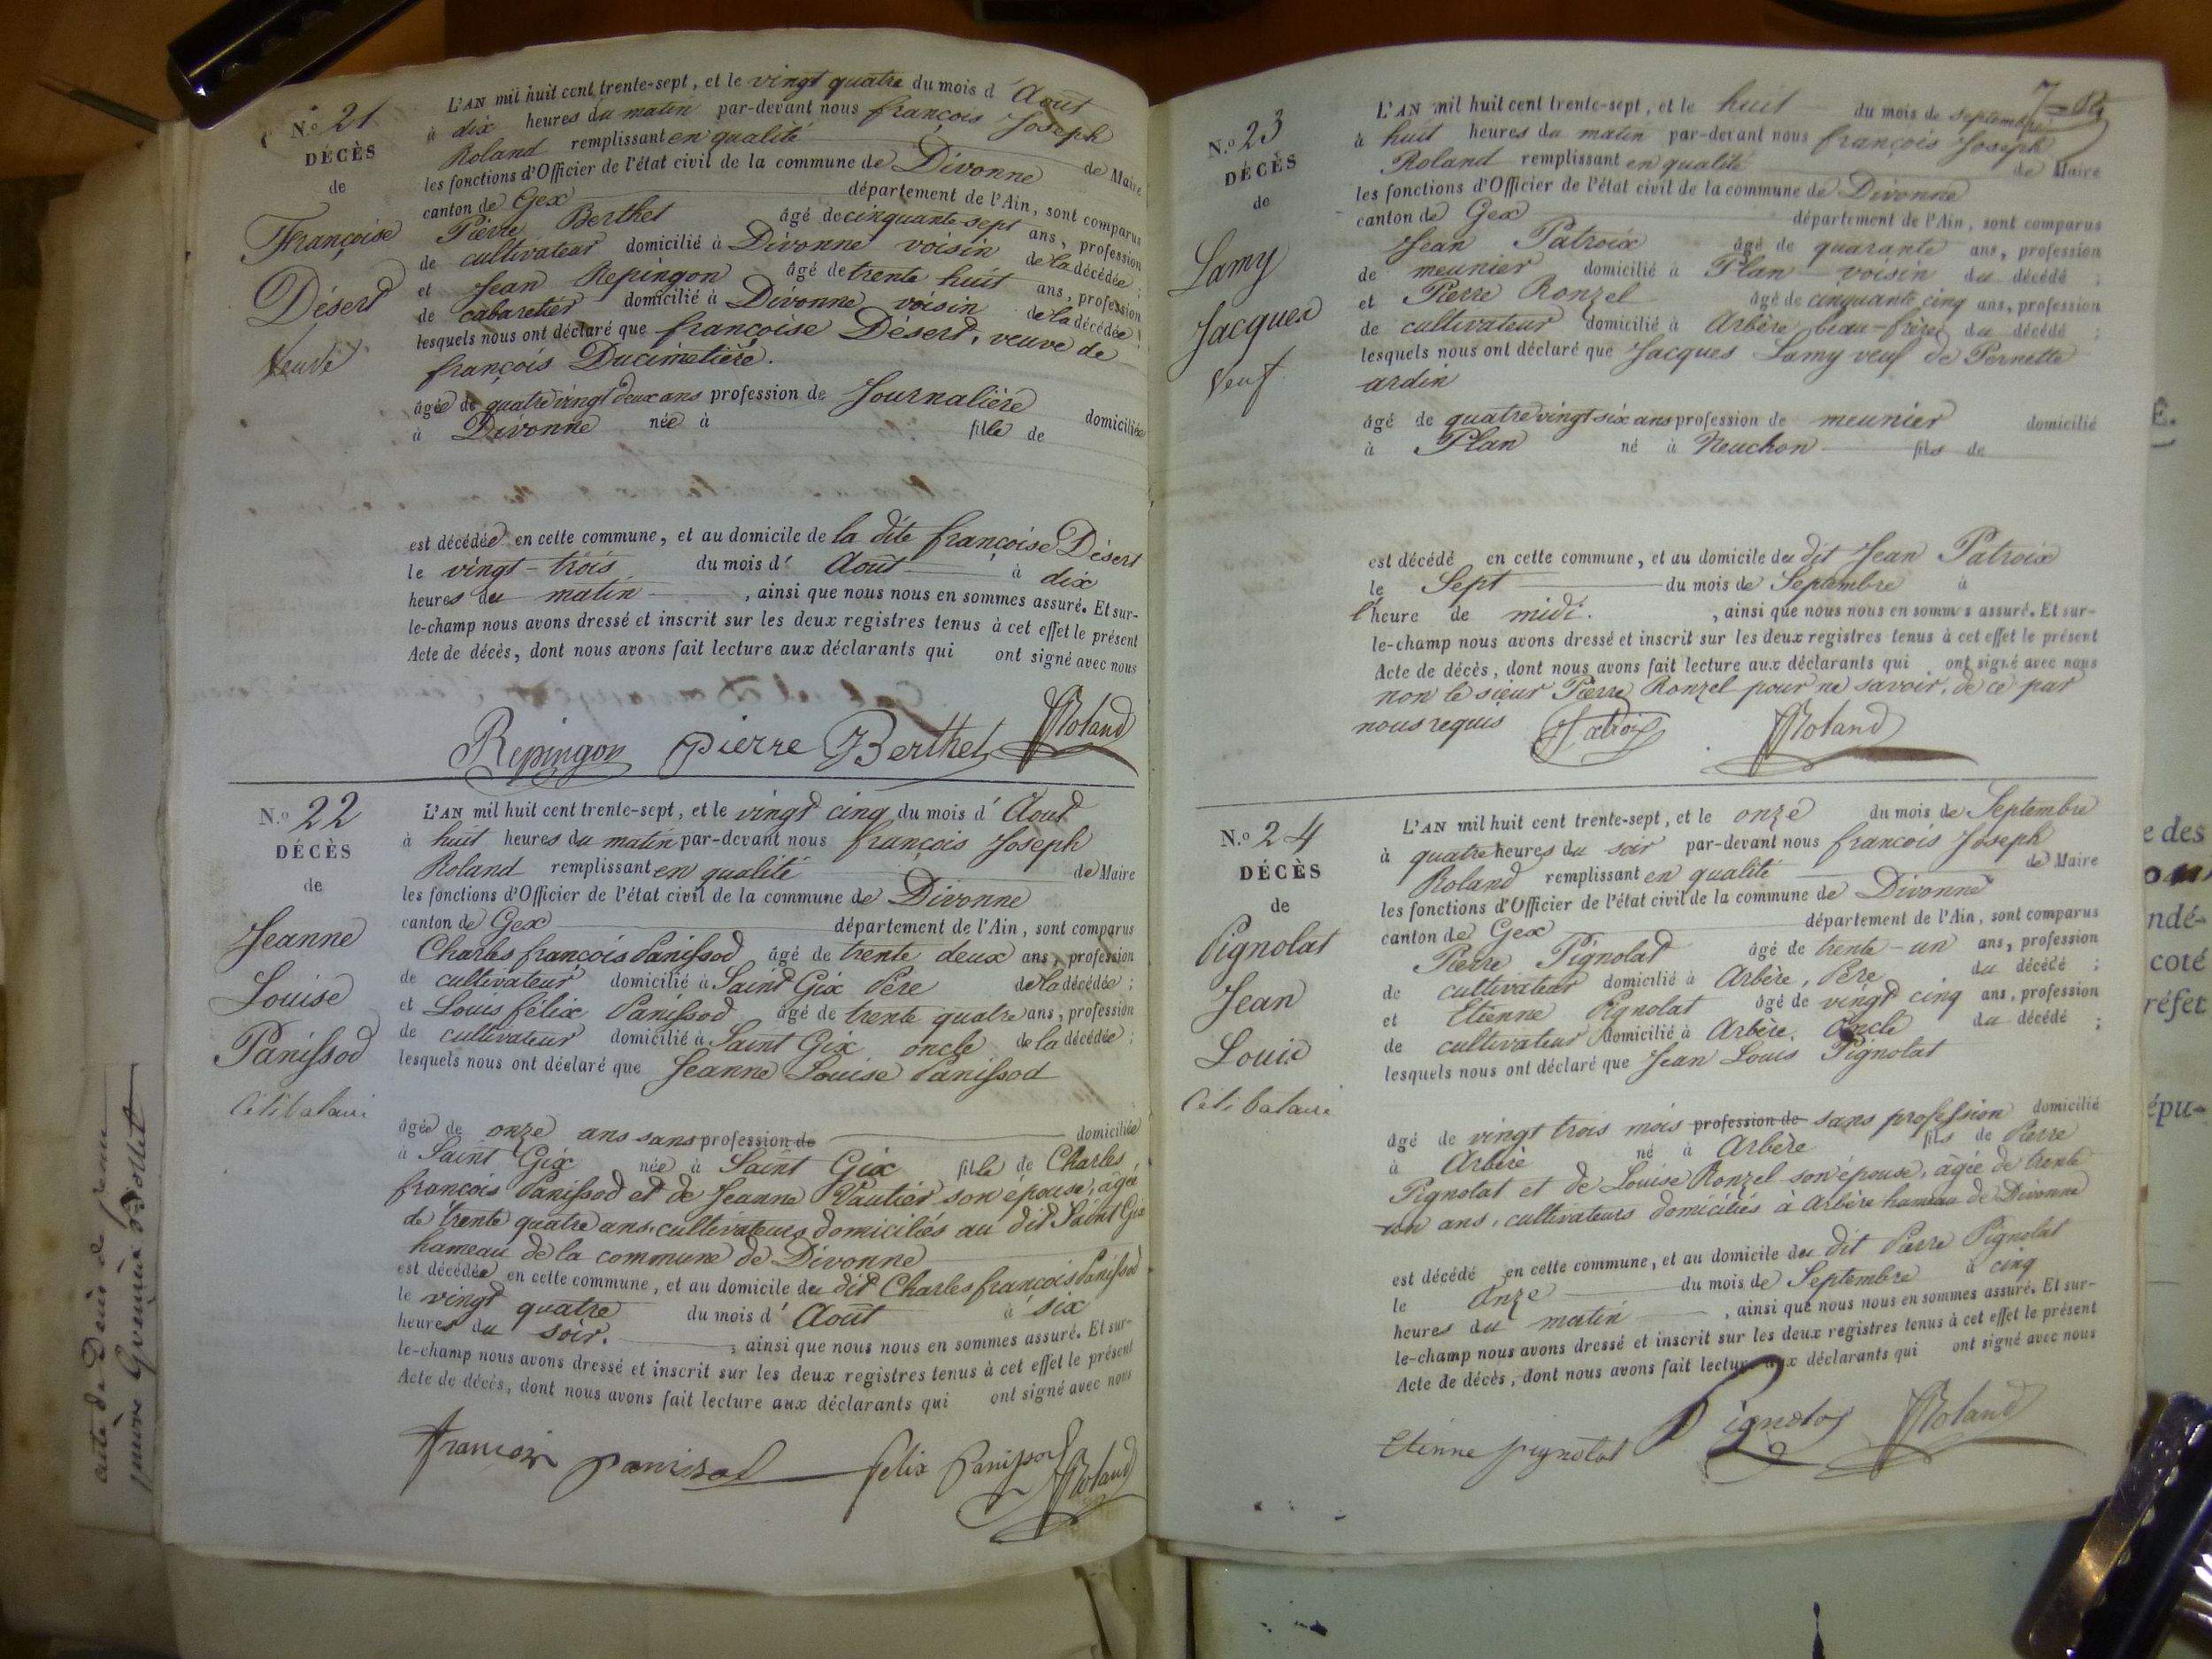 N.o 21
DÉCÈS
de
Françoise
Désert
Veuve
L'AN mil huit cent trente-sept, et le vingt quatre du mois d'Août
à dix heures du matin par-devant nous françois Joseph
Roland remplissant en qualité de Maire
les fonctions d'Officier de l'état civil de la commune de Divonne
canton de Gex département de l'Ain, sont comparus
Pierre Berthet âgé de cinquante-sept ans, profession
de cultivateur domicilié à Divonne voisin de la décédée ;
et Jean Repingon âgé de trente huit ans, profession
de cabaretier domicilié à Divonne voisin de la décédée ;
lesquels nous ont déclaré que françoise Désert, veuve de
françois Ducimetière.
âgée de quatre vingt deux ans profession de Journalière domiciliée
à Divonne née à fille de
est décédée en cette commune, et au domicile de la dite françoise Désert
le vingt-trois du mois d'Août à dix
heures du matin, ainsi que nous nous en sommes assuré. Et sur-
le-champ nous avons dressé et inscrit sur les deux registres tenus à cet effet le présent
Acte de décès, dont nous avons fait lecture aux déclarants qui ont signé avec nous
Repingon pierre Berthet Roland
N.o 22
DÉCÈS
de
Jeanne
Louise
Panissod
Célibataire
L'AN mil huit cent trente-sept, et le vingt cinq du mois d'Aout
à huit heures du matin par-devant nous françois Joseph
Roland remplissant en qualité de Maire
les fonctions d'Officier de l'état civil de la commune de Divonne
canton de Gex département de l'Ain, sont comparus
Charles françois Panissod âgé de trente deux ans, profession
de cultivateur domicilié à Saint Gix Père de la décédée ;
et Louis félix Panissod âgé de trente quatre ans, profession
de cultivateur domicilié à Saint Gix oncle de la décédée ;
lesquels nous ont déclaré que Jeanne Louise Panissod
âgée de onze ans sans profession de domiciliée
à Saint Gix née à Saint Gix fille de Charles
françois Panissod et de Jeanne Vautier son épouse, âgée
de trente quatre ans, cultivateurs domiciliés au dit Saint Gix
hameau de la commune de Divonne
est décédée en cette commune, et au domicile du dit Charles françois Panissod
le vingt quatre du mois d'Août à six
heures du soir. , ainsi que nous nous en sommes assuré. Et sur-
le-champ nous avons dressé et inscrit sur les deux registres tenus à cet effet le présent
Acte de décès, dont nous avons fait lecture aux déclarants qui ont signé avec nous
françois panissod felix Panissod Roland
N.o 23
DÉCÈS
de
Lamy
Jacques
Veuf
L'AN mil huit cent trente-sept, et le huit du mois de septembre
à huit heures du matin par-devant nous françois Joseph
Roland remplissant en qualité de Maire
les fonctions d'Officier de l'état civil de la commune de Divonne
canton de Gex département de l'Ain, sont comparus
Jean Patroix âgé de quarante ans, profession
de meunier domicilié à Plan voisin du décédé ;
et Pierre Ronzel âgé de cinquante cinq ans, profession
de cultivateur domicilié à Arbère beau-frère du décédé ;
lesquels nous ont déclaré que Jacques Lamy veuf de Pernette
ardin
âgé de quatre vingt six ans profession de meunier domicilié
à Plan né à Neuchon fils de
est décédé en cette commune, et au domicile du dit Jean Patroix
le Sept du mois de Septembre à
l'heure de midi. , ainsi que nous nous en sommes assuré. Et sur-
le-champ nous avons dressé et inscrit sur les deux registres tenus à cet effet le présent
Acte de décès, dont nous avons fait lecture aux déclarants qui ont signé avec nous
non le sieur Pierre Ronzel pour ne savoir, de ce par
nous requis JPatroix Roland
N.o 24
DÉCÈS
de
Pignolat
Jean
Louis
Célibataire
L'AN mil huit cent trente-sept, et le onze du mois de Septembre
à quatre heures du soir par-devant nous françois Joseph
Roland remplissant en qualité de Maire
les fonctions d'Officier de l'état civil de la commune de Divonne
canton de Gex département de l'Ain, sont comparus
Pierre Pignolat âgé de trente-un ans, profession
de cultivateur domicilié à Arbère, Père du décédé ;
et Etienne Pignolat âgé de vingt cinq ans, profession
de cultivateur domicilié à Arbère, Oncle du décédé ;
lesquels nous ont déclaré que Jean Louis Pignolat
âgé de vingt trois mois profession de sans profession domicilié
à Arbère né à Arbère fils de Pierre
Pignolat et de Louise Ronzel son épouse, âgée de trente
un ans, cultivateurs domiciliés à Arbère hameau de Divonne
est décédé en cette commune, et au domicile du dit Pierre Pignolat
le Onze du mois de Septembre à cinq
heures du matin, ainsi que nous nous en sommes assuré. Et sur-
le-champ nous avons dressé et inscrit sur les deux registres tenus à cet effet le présent
Acte de décès, dont nous avons fait lecture aux déclarants qui ont signé avec nous
Etienne pignolat Pignolat Roland
E.
e des
ndé-
coté
réfet
épu-